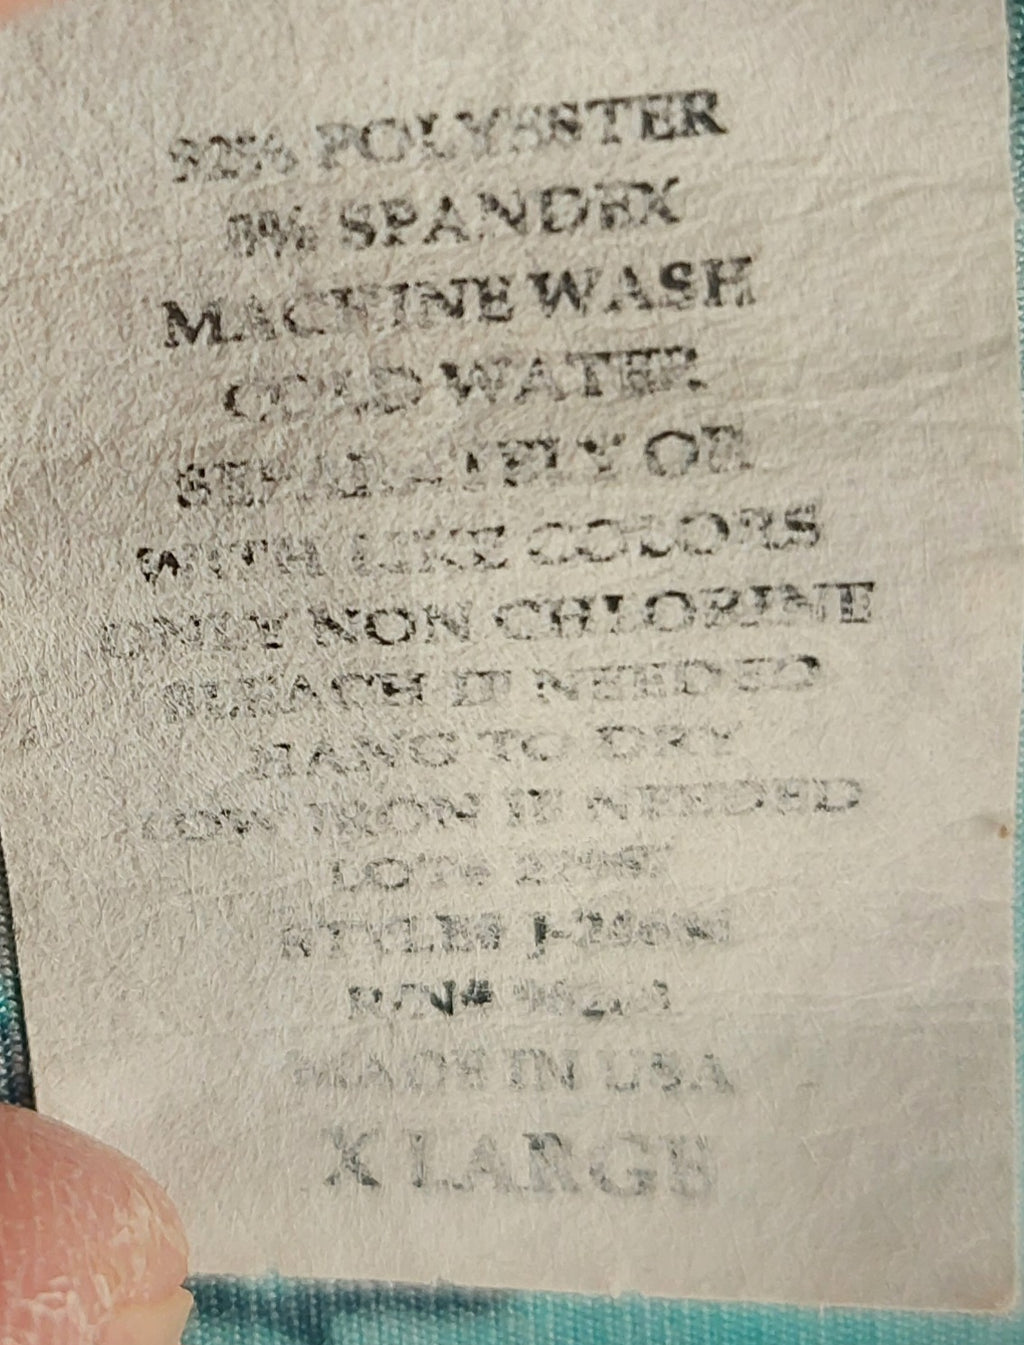 92% POLYESTER
8% SPANDEX
MACHINE WASH
COLD WATER
SEPARATELY OR
WITH LIKE COLORS
ONLY NON CHLORINE
BLEACH IF NEEDED
HANG TO DRY
LOW IRON IF NEEDED
LOT#
STYLE#
R/N#
MADE IN USA
X LARGE